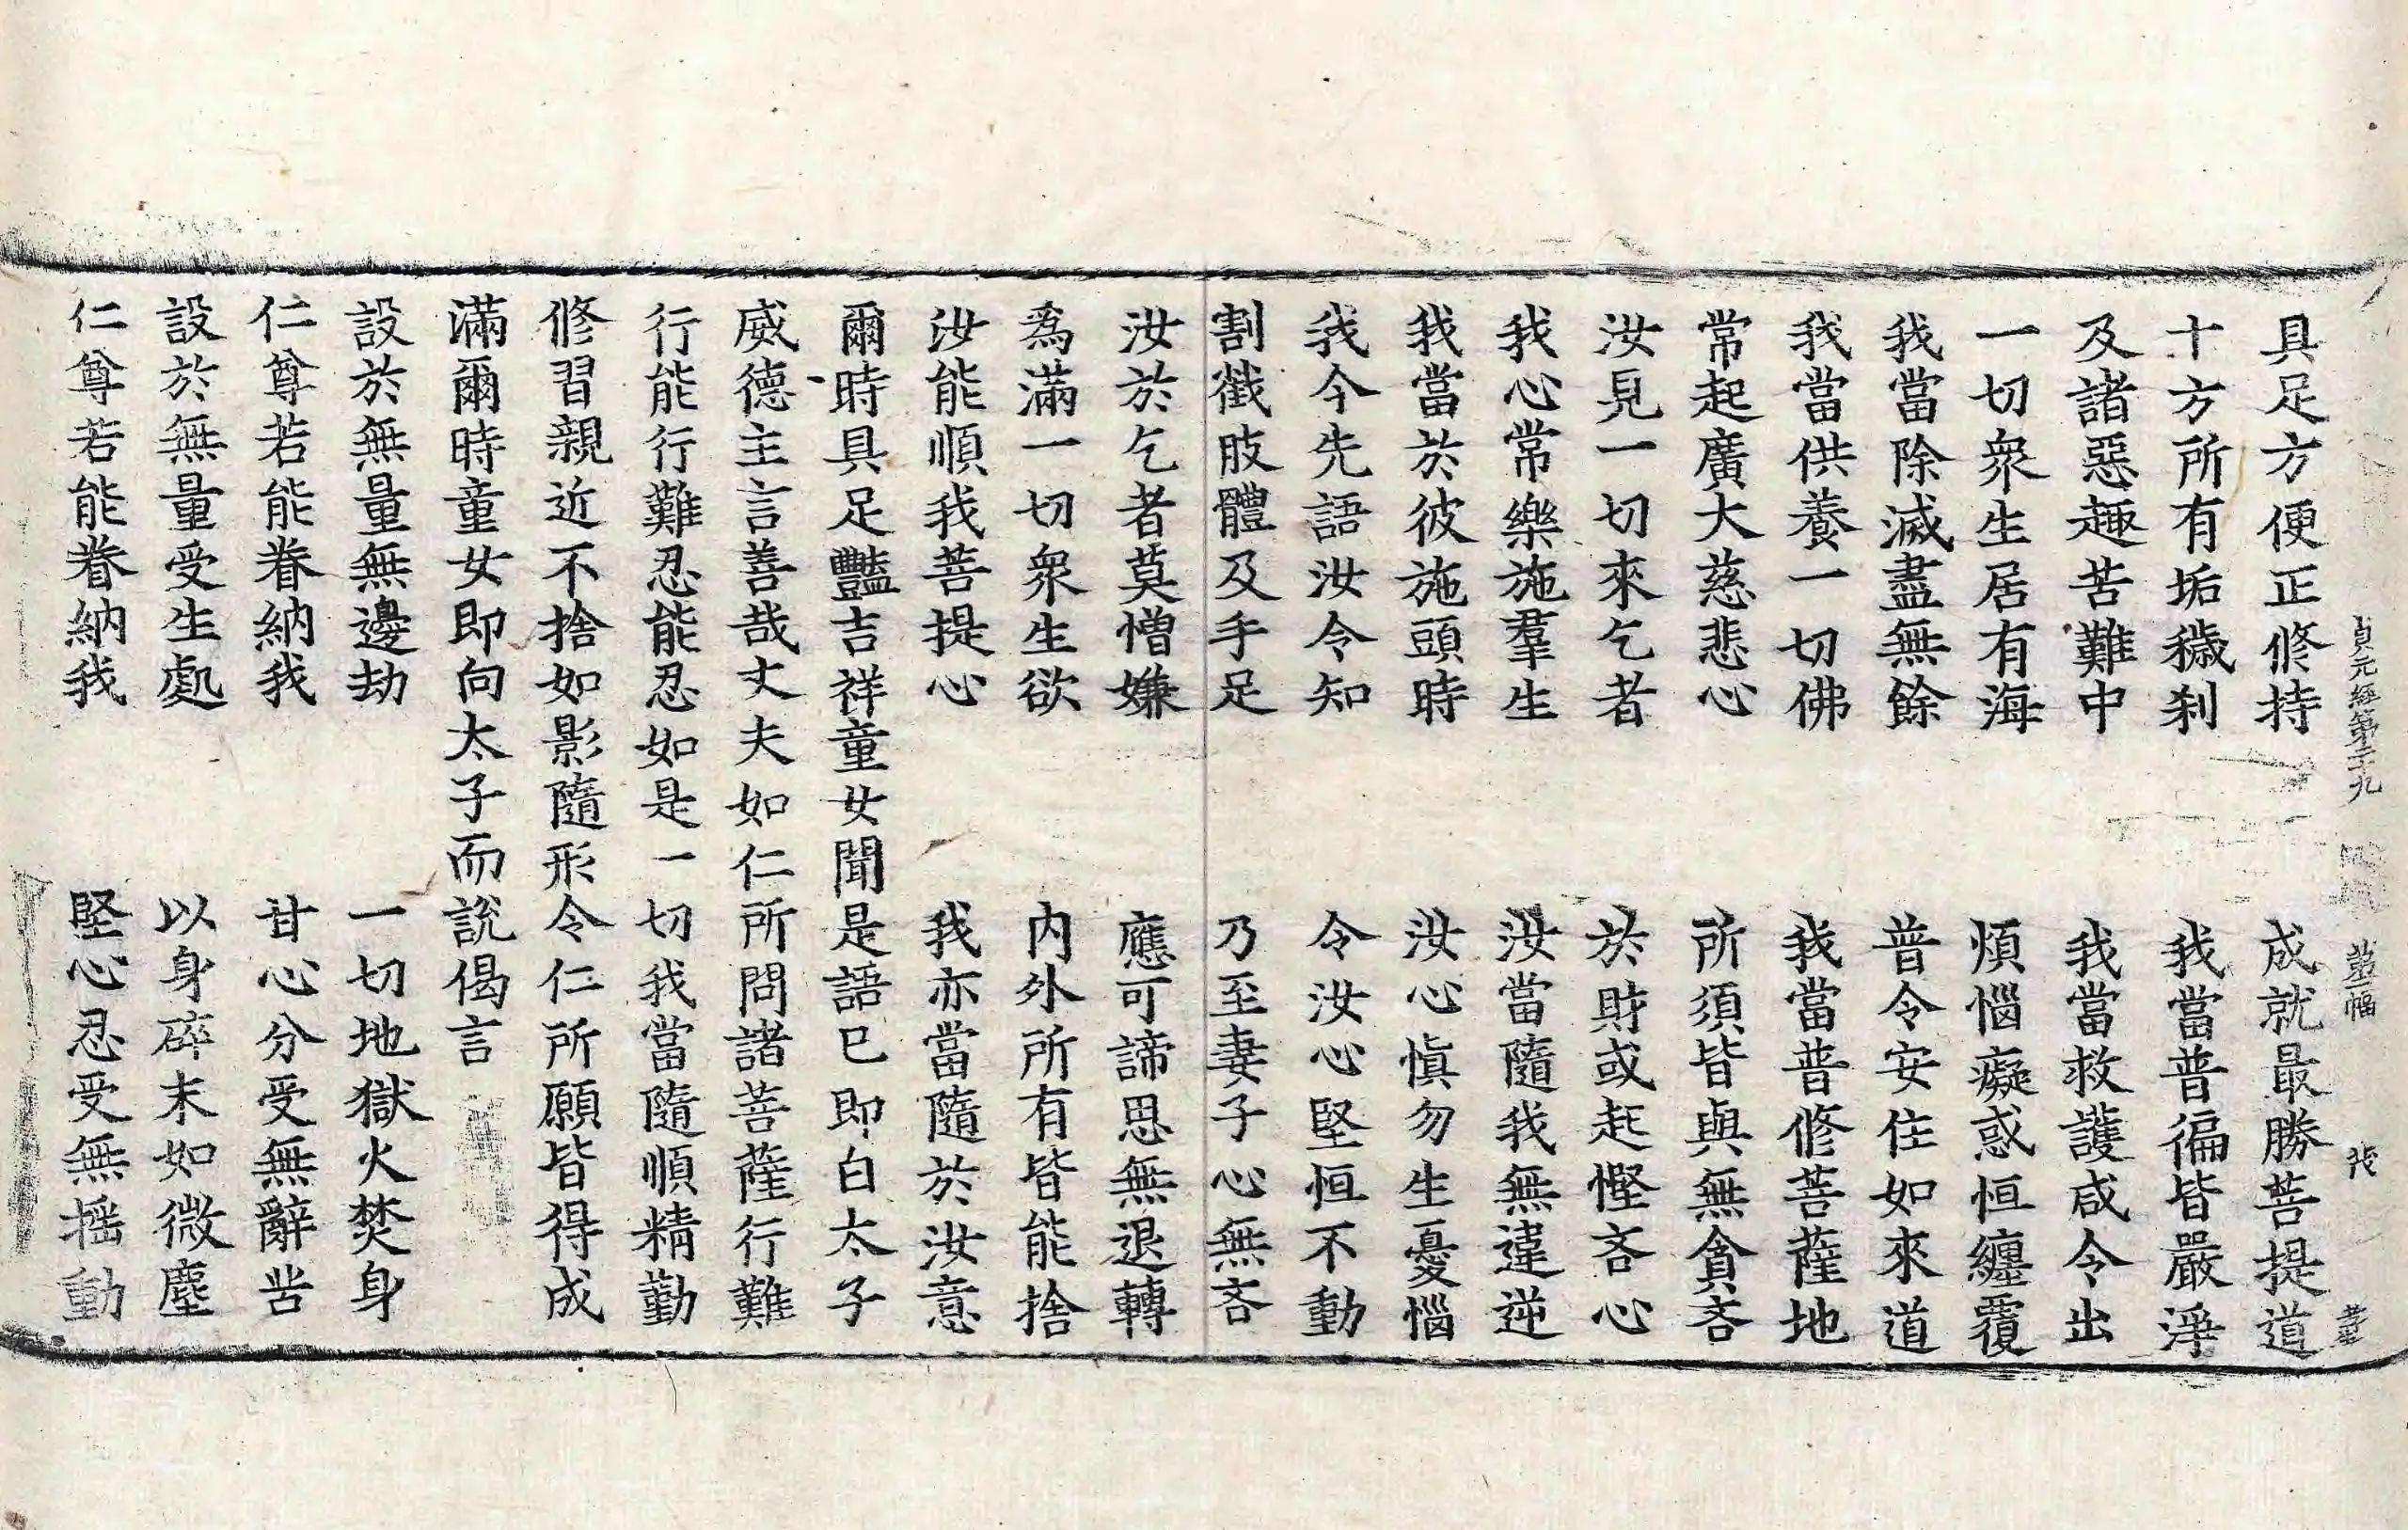 貞元經第二十九
具足方便正修持　成就最勝菩提道
十方所有垢穢刹　我當普徧皆嚴淨
及諸惡趣苦難中　我當救護咸令出
一切衆生居有海　煩惱癡惑恒纏覆
我當除滅盡無餘　普令安住如來道
我當供養一切佛　我當普修菩薩地
常起廣大慈悲心　所須皆與無貪吝
汝見一切來乞者　於財或起慳吝心
我心常樂施羣生　汝當隨我無違逆
我當於彼施頭時　汝心愼勿生憂惱
我今先語汝令知　令汝心堅恒不動
割截肢體及手足　乃至妻子心無吝
汝於乞者莫憎嫌　應可諦思無退轉
爲滿一切衆生欲　内外所有皆能捨
汝能順我菩提心　我亦當隨於汝意
爾時具足豔吉祥童女聞是語已即白太子
威德主言善哉丈夫如仁所問諸菩薩行難
行能行難忍能忍如是一切我當隨順精勤
修習親近不捨如影隨形令仁所願皆得成
滿爾時童女即向太子而說偈言
設於無量無邊劫　一切地獄火焚身
仁尊若能眷納我　甘心分受無辭苦
設於無量受生處　以身碎末如微塵
仁尊若能眷納我　堅心忍受無摇動